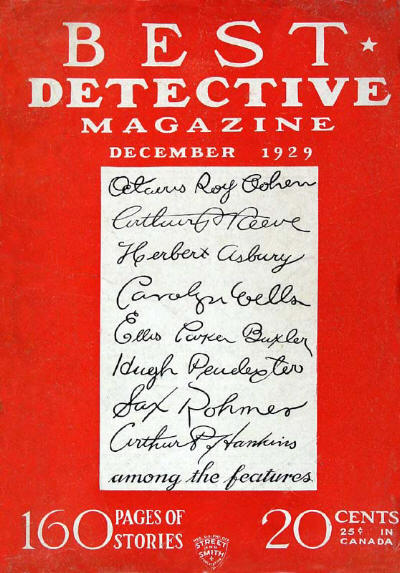 BEST
DETECTIVE
MAGAZINE
DECEMBER 1929
Octavus Roy Cohen
Arthur B Reeve
Herbert Asbury
Carolyn Wells
Ellis Parker Butler
Hugh Pendexter
Sax Rohmer
Arthur P. Hankins
among the features
160 PAGES OF
STORIES
20 CENTS
25¢ IN
CANADA
STREET
AND
SMITH